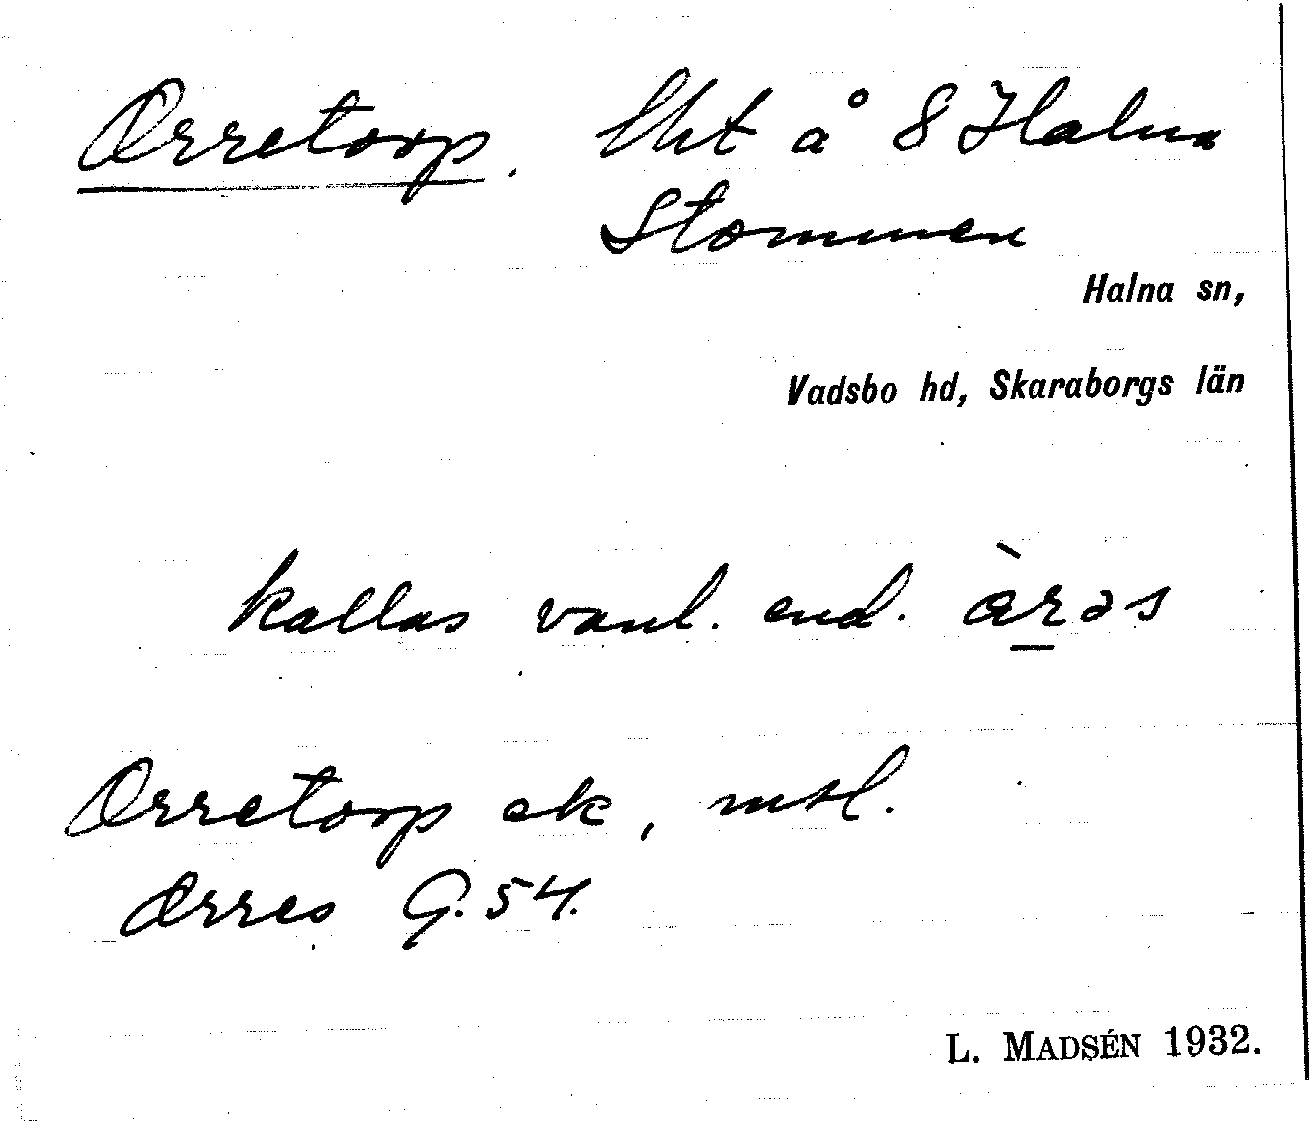 Orretorp. lht å 8 Halna
Stommen
Halna sn,
Vadsbo hd, Skaraborgs län
kallas vanl. end. àrəs
Orretorp ek, mtl.
Orres G. 54.
L. MADSÉN 1932.